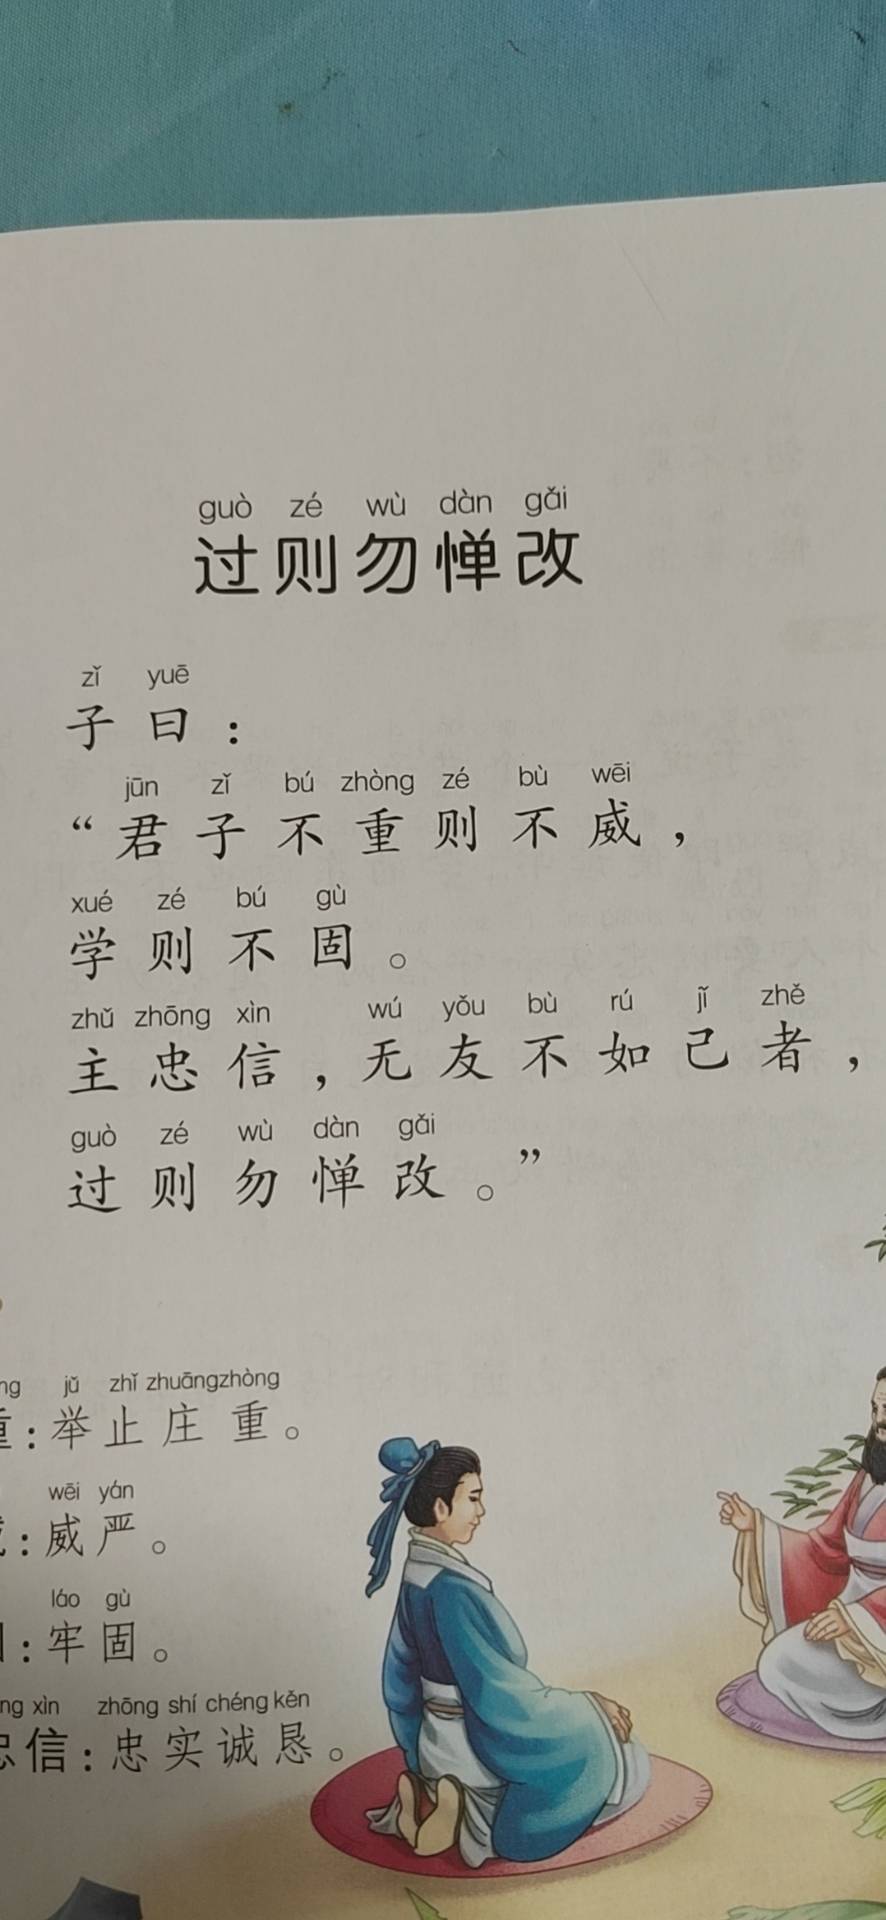 guò zé wù dàn gǎi
过则勿惮改
zǐ yuē
子曰：
jūn zǐ bú zhòng zé bù wēi
“君子不重则不威，
xué zé bú gù
学则不固。
zhǔ zhōng xìn wú yǒu bù rú jǐ zhě
主忠信，无友不如己者，
guò zé wù dàn gǎi
过则勿惮改。”
jǔ zhǐ zhuāngzhòng
重：举止庄重。
wēi yán
：威严。
láo gù
：牢固。
xìn zhōng shí chéng kěn
忠信：忠实诚恳。